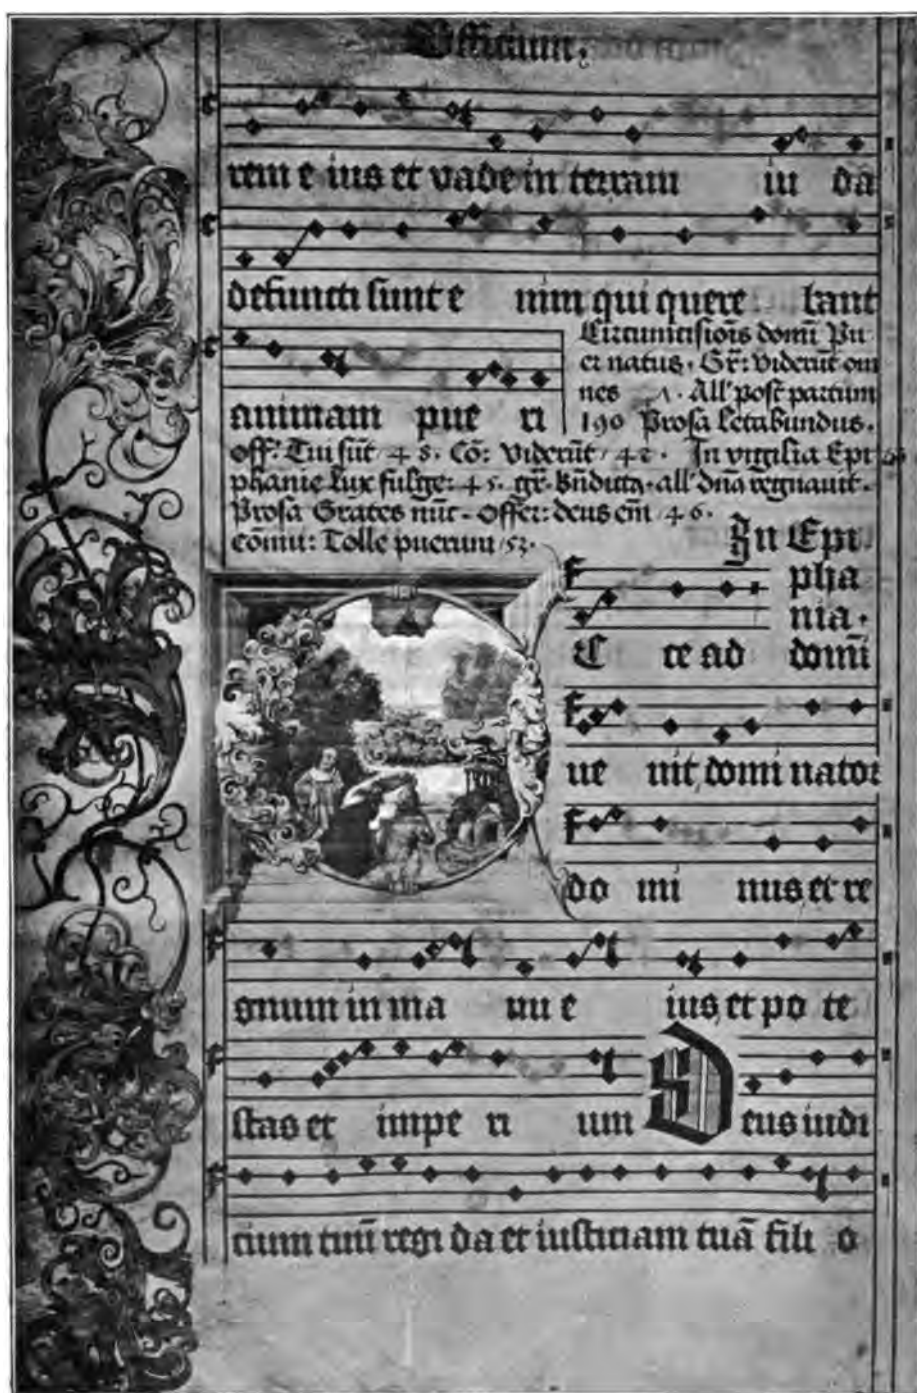 Officium.
rem e ius et vade in terram iu da
defuncti sunt e nim qui quere bant
Circumcisiōis domī Pu
er natus. Gr̄: viderūt om
nes 1. All' post partum
animam pue ri
190 Prosa Letabundus.
Off: Tui sūt 48. Cō: Viderūt 42. In virgilia Epi
phanie Lux fulge: 45. gr̄. bn̄dictꝰ. all' dn̄s regnavit.
Prosa Grates nūc. Offer: deus em̄ 46.
cōmu: Tolle puerum 52.
In Epi
pha
nia.
E cce ad domī
ue nit, domi nator
do mi nus et re
gnum in ma nu e ius, et po te
stas et impe ri um Deus iudi
cium tuū regi da et iusticiam tuā fili o